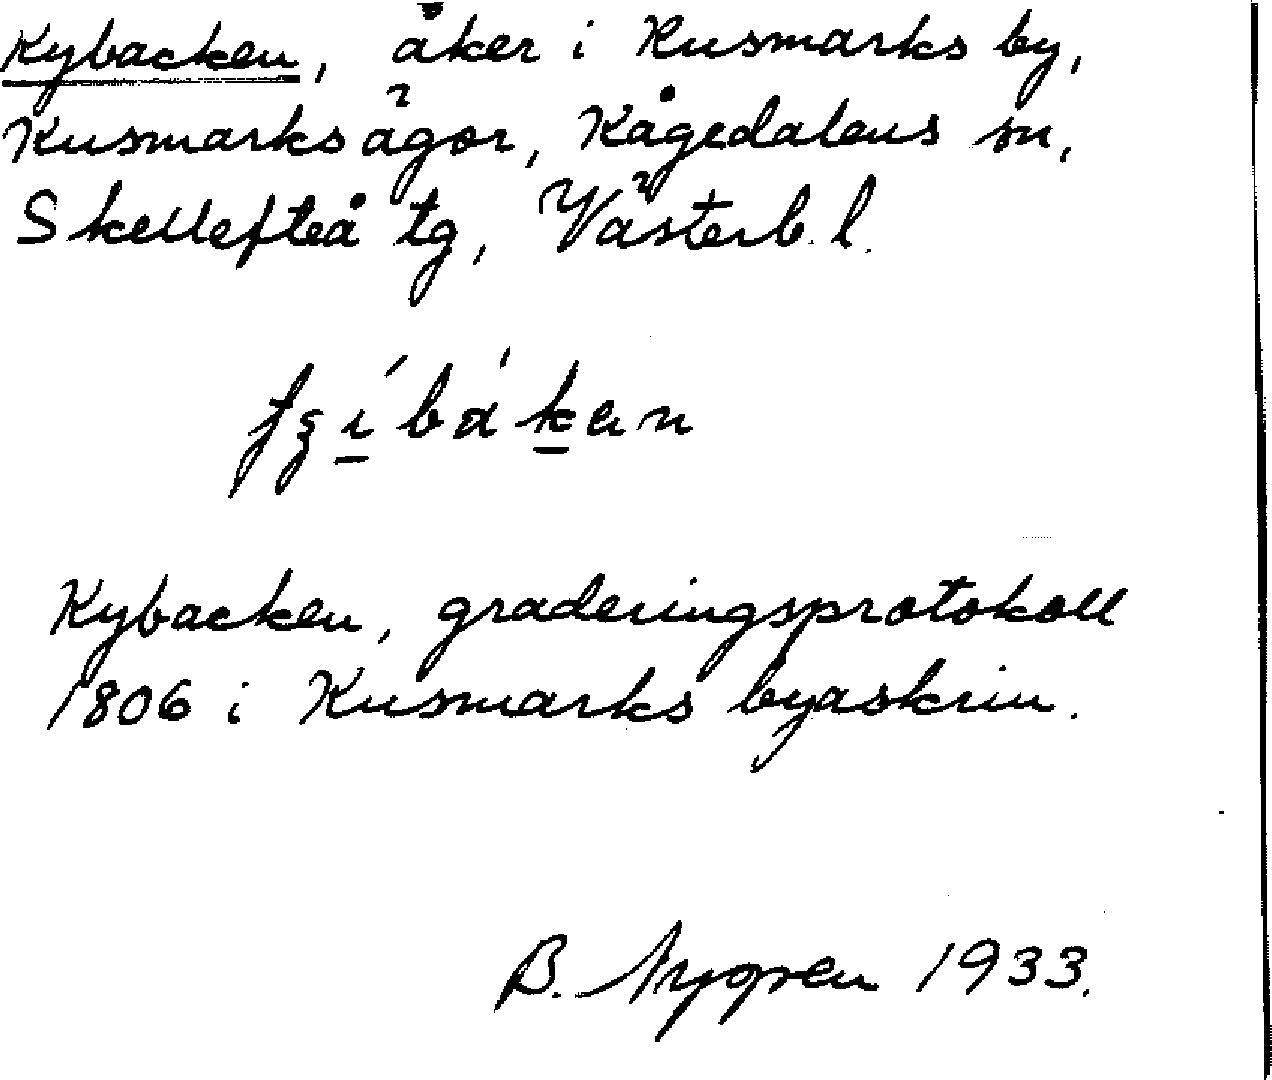 Kybacken, åker i Kusmarks by,
Kusmarks ägor, Kågedalens sn,
Skellefteå tg, Västerb. l.
Kybacken, graderingsprotokoll
1806 i Kusmarks byaskrin.
B. Nygren 1933.